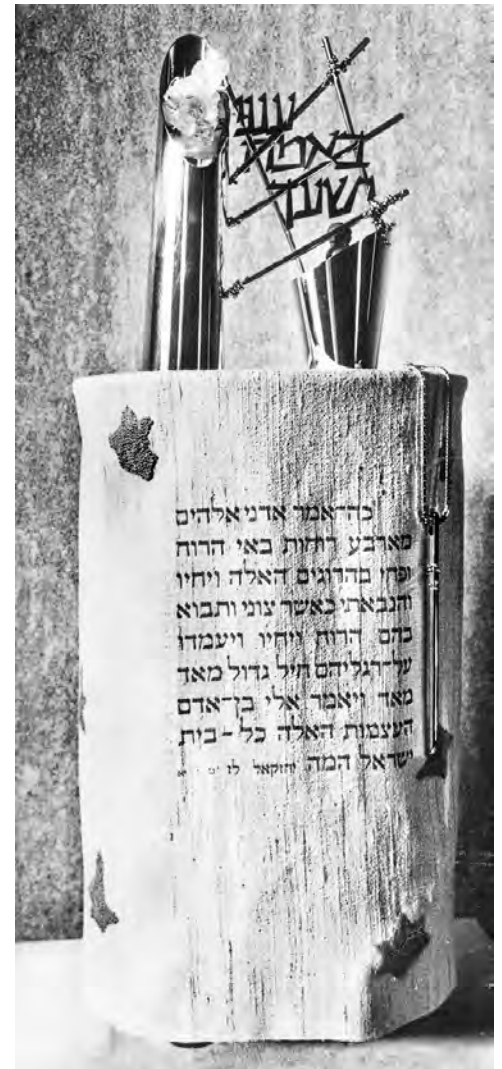 ענני
באמת
ישעך
כה־אמר אדני אלהים
מארבע רוחות באי הרוח
ופחי בהרוגים האלה ויחיו
והנבאתי כאשר צוני ותבוא
בהם הרוח ויחיו ויעמדו
על־רגליהם חיל גדול מאד
מאד ויאמר אלי בן־אדם
העצמות האלה כל־בית
ישראל המה יחזקאל לז